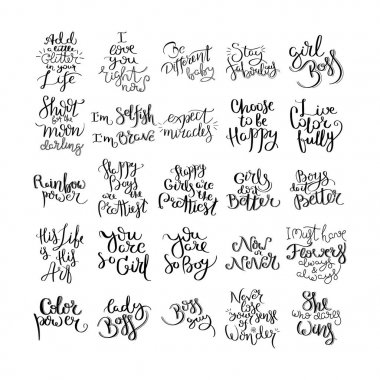 Add
a little
Glitter
in your
Life
I
love
you
right
now
Be
Different
baby
Stay
fabulous
girl
Boss
Shoot
for the
moon
darling
I'm Selfish
I'm Brave
expect
miracles
Choose
to be
Happy
Live
Color
fully
Rainbow
power
Happy
Boys
are the
Prettiest
Happy
Girls are
the
Prettiest
Girls
do it
Better
Boys
do it
Better
His Life
is His
Art
you
are
so Girl
you
are
so Boy
Now
or
Never
I must have
Flowers
always
& always
Color
power
lady
Boss
Boss
guy
Never
lose
your sense
of
Wonder
She
who dares
Wins